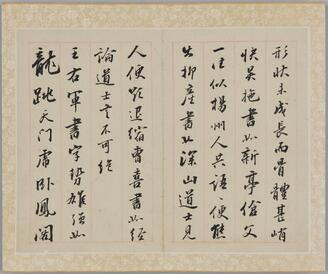 形狀未成長而骨體甚峭
快吳施書如新亭傖父
一往似揚州人共語便態
出柳產書如深山道士見
人便欲退縮曹喜書如經
論道士言不可絕
王右軍書字勢雄強如
龍跳天門虎臥鳳閣